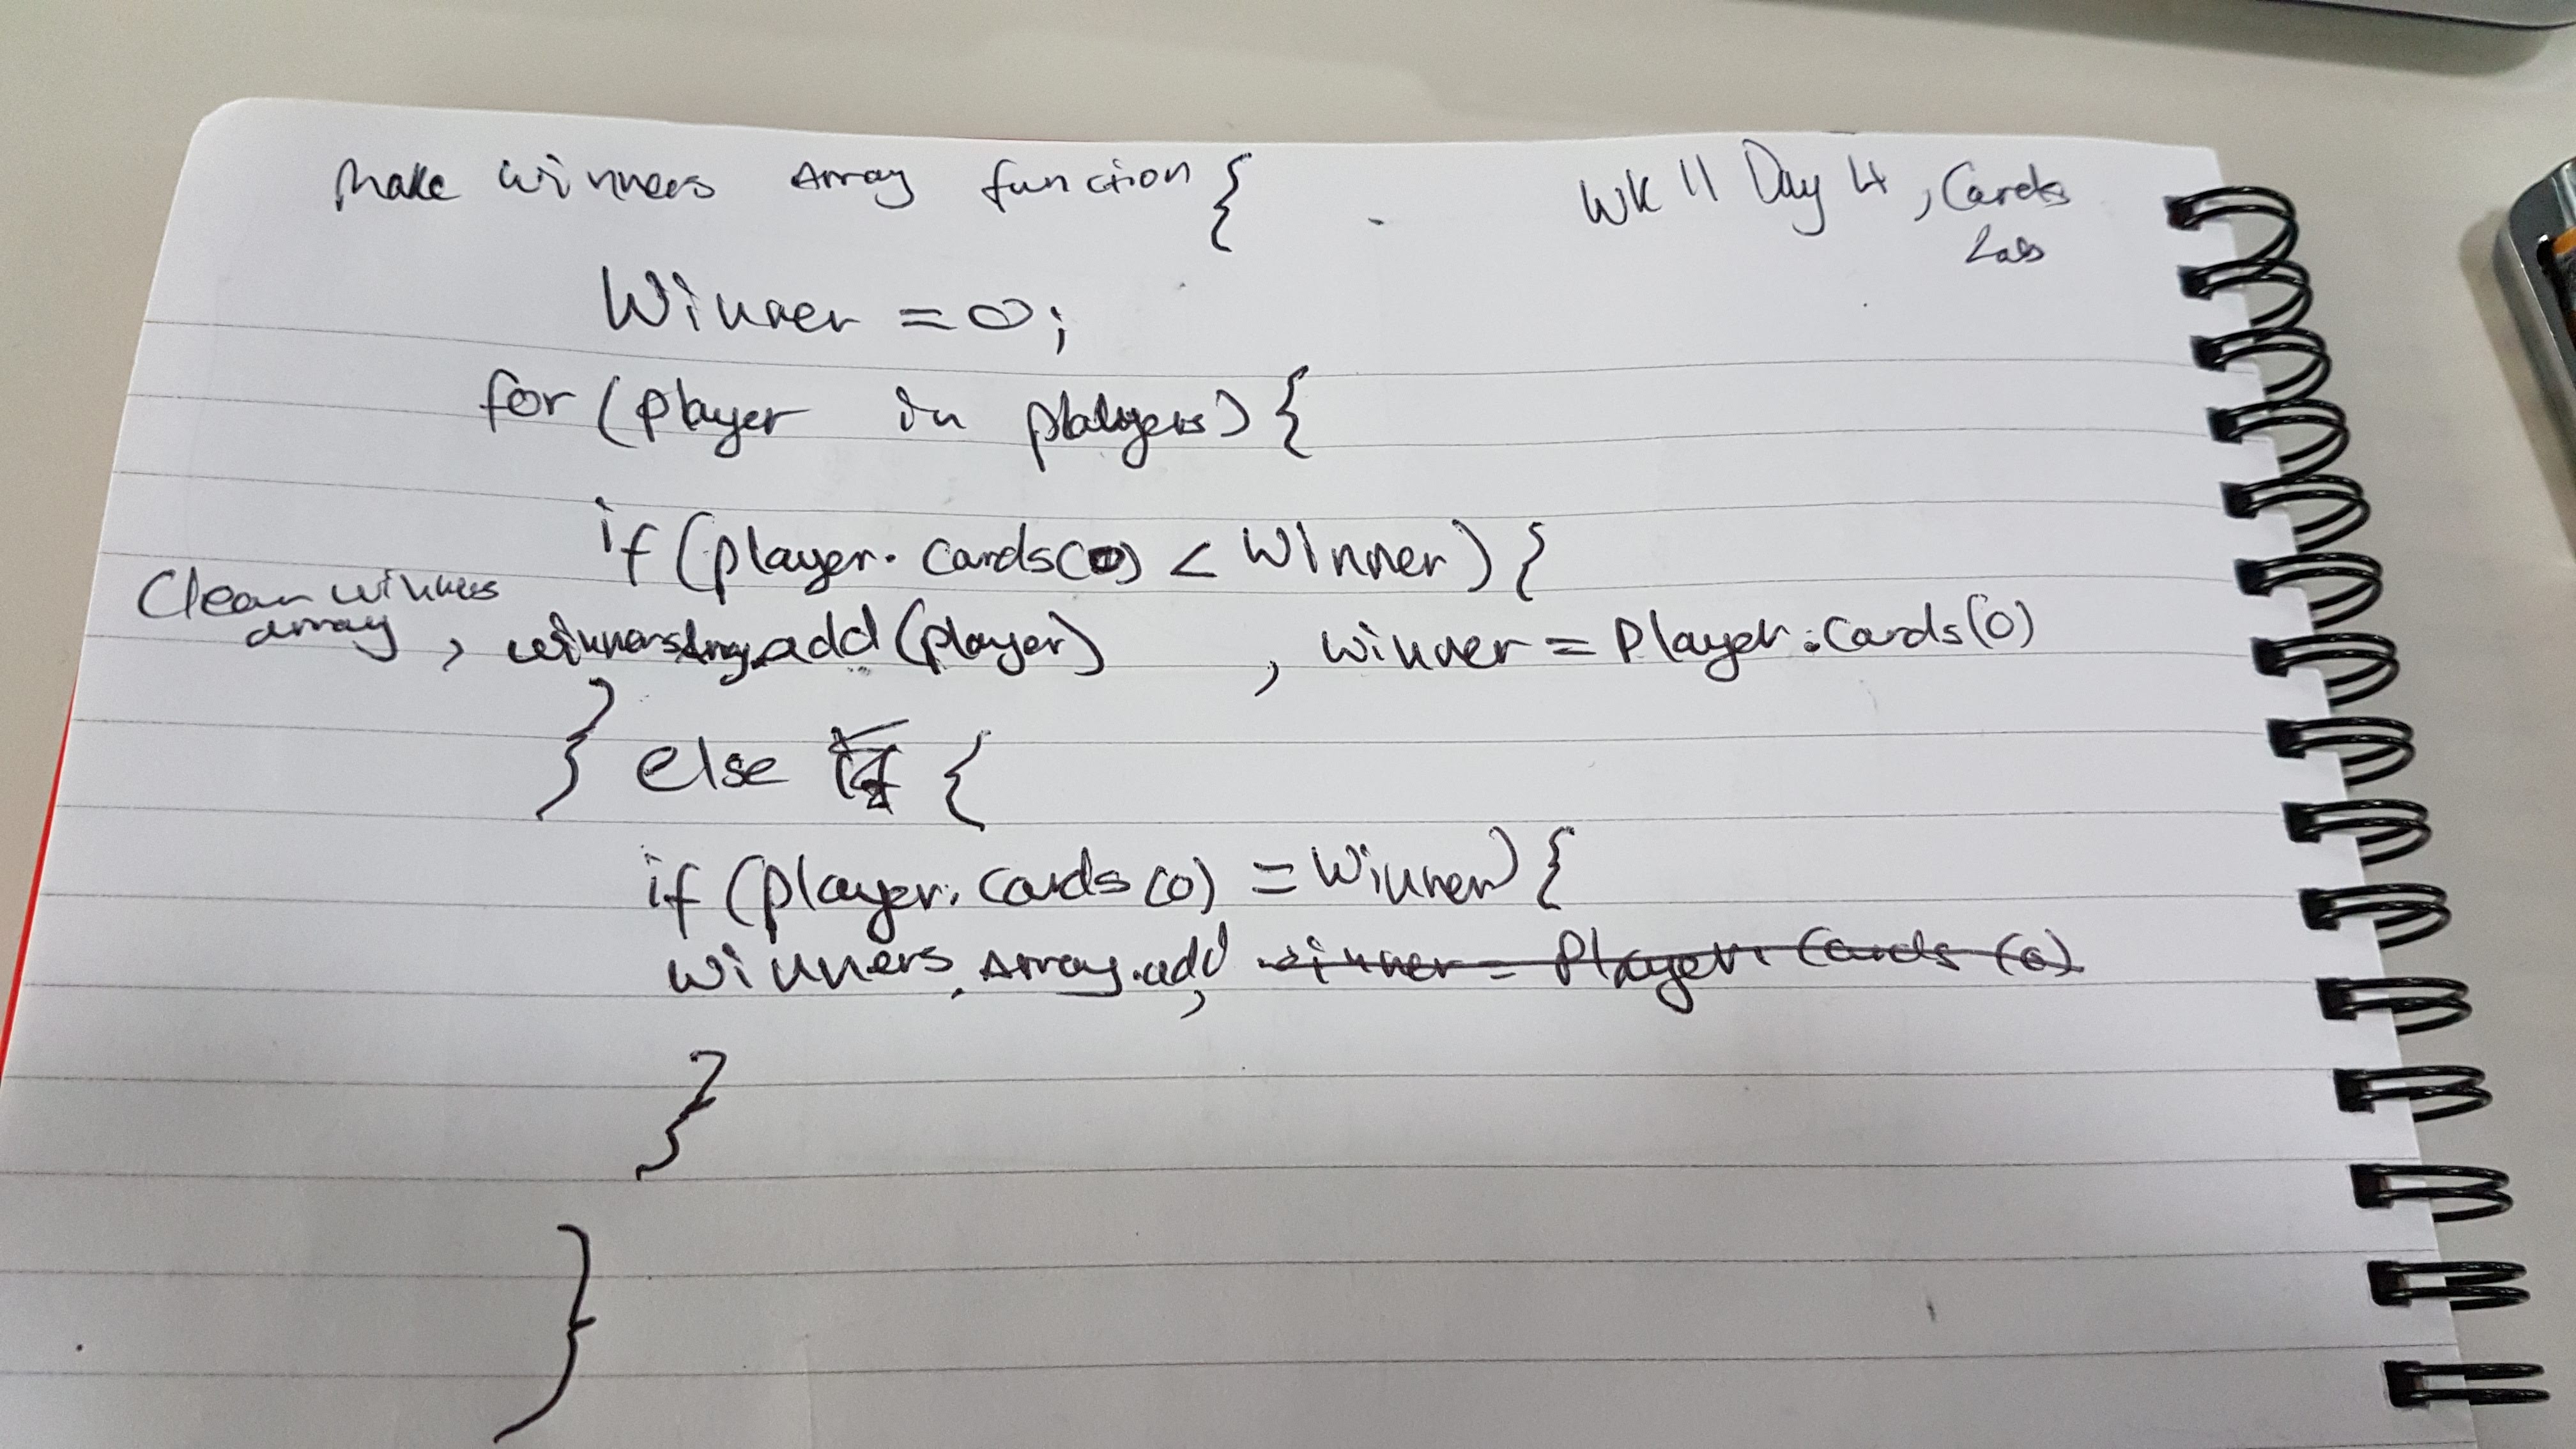 Make winners Array function {
Wk 11 Day 4, Cards
Lab
Winner = 0;
for (player in players) {
if (player.cards(0) < Winner) {
Clear winners
array, winnersArray.add(player), winner = Player.Cards(0)
} else {
if (player.cards(0) = Winner) {
Winners.Array.add, winner = Player.Cards(0)
}
}